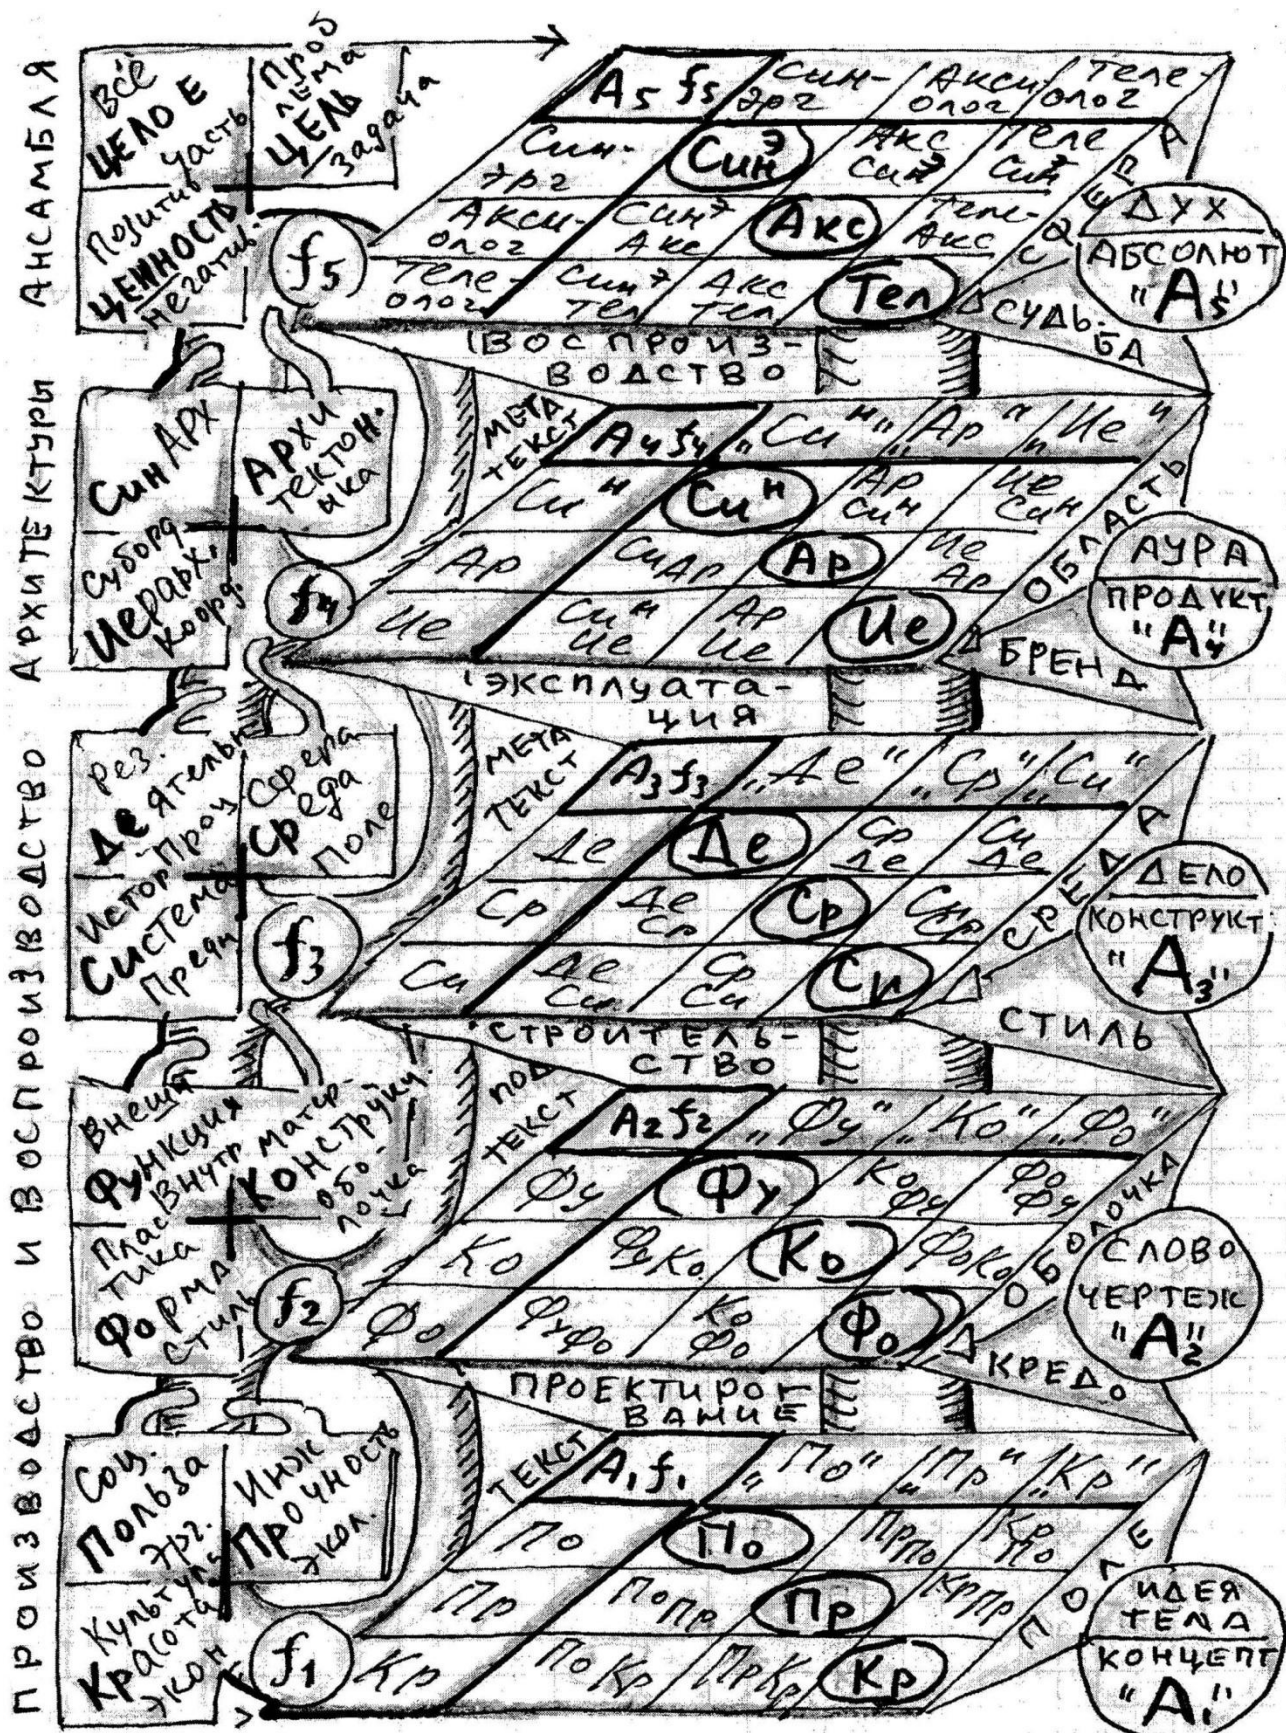 ПРОИЗВОДСТВО И ВОСПРОИЗВОДСТВО АРХИТЕКТУРЫ АНСАМБЛЯ
Всё
ЦЕЛОЕ
Часть
Проб
лема
ЦЕЛЬ
Задача
Позитив
ЦЕННОСТЬ
негатив.
f5
A5 f5
Син-
эрг
Акси
олог
Теле-
олог
Син-
эрг
Синэ
Акс
Синэ
Теле
Синэ
Акси-
олог
Синэ
Акс
Акс
Теле-
Акс
Теле-
олог
Синэ
Тел
Акс
Тел
Тел
СФЕРА
СУДЬ-
БА
ДУХ
АБСОЛЮТ
"А5"
ВОСПРОИЗ-
ВОДСТВО
Син АРХ
АРХИ
ТЕКТОН.
ИКА
Суборд
Иерарх.
Коорд.
f4
МЕТА
ТЕКСТ
A4 f4
"Син"
"Ар"
"Ие"
Син
Син
Ар
Син
Ие
Син
Ар
СиАр
Ар
Ие
Ар
Ие
Син
Ие
Ар
Ие
Ие
ОБЛАСТЬ
БРЕНД
АУРА
ПРОДУКТ
"А4"
ЭКСПЛУАТА-
ЦИЯ
рез.
Деятельн
Проц
Сфера
Среда
Поле
Истор
Система
Предм
f3
МЕТА
ТЕКСТ
A3 f3
"Де"
"Ср"
"Си"
Де
Де
Ср
Де
Си
Де
Ср
Де
Ср
Ср
Си
Ср
Си
Де
Си
Ср
Си
Си
СРЕДА
СТИЛЬ
ДЕЛО
КОНСТРУКТ
"А3"
СТРОИТЕЛЬ-
СТВО
Внешн
Функция
Внутр
матер-
Конструкц.
обо-
лочка
Плас
тика
Форма
Стиль
f2
ПОД
ТЕКСТ
A2 f2
"Фу"
"Ко"
"Фо"
Фу
Фу
Ко
Фу
Фо
Фу
Ко
Фу Ко
Ко
Фо Ко
Фо
ФуФо
Ко
Фо
Фо
ОБОЛОЧКА
КРЕДО
СЛОВО
ЧЕРТЕЖ
"А2"
ПРОЕКТИРО-
ВАНИЕ
Соц.
Польза
эрг.
Инж
Прочность
экол.
Культур
Красота
экон
f1
ТЕКСТ
A1 f1
"По"
"Пр"
"Кр"
По
По
ПрПо
Кр
По
Пр
ПоПр
Пр
КрПр
Кр
По Кр
ПрКр
Кр
ПОЛЕ
ИДЕЯ
ТЕМА
КОНЦЕПТ
"А1"